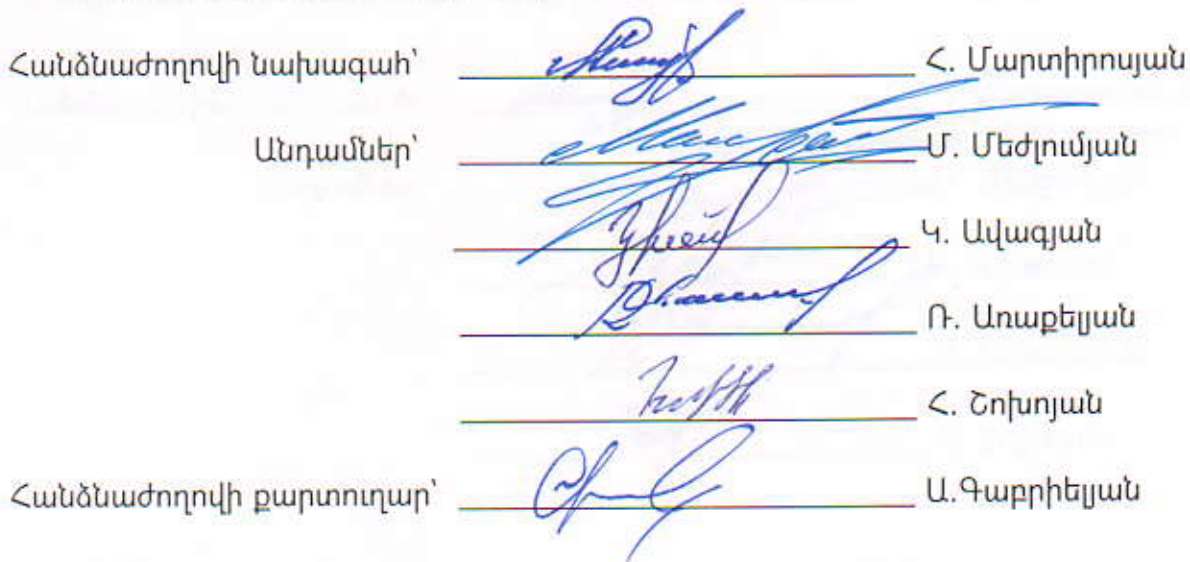 Հանձնաժողովի նախագահ՝ Հ. Մարտիրոսյան
Անդամներ՝ Մ. Մեժլումյան
Կ. Ավագյան
Ռ. Առաքելյան
Հ. Շոխոյան
Հանձնաժողովի քարտուղար՝ Ա.Գաբրիելյան